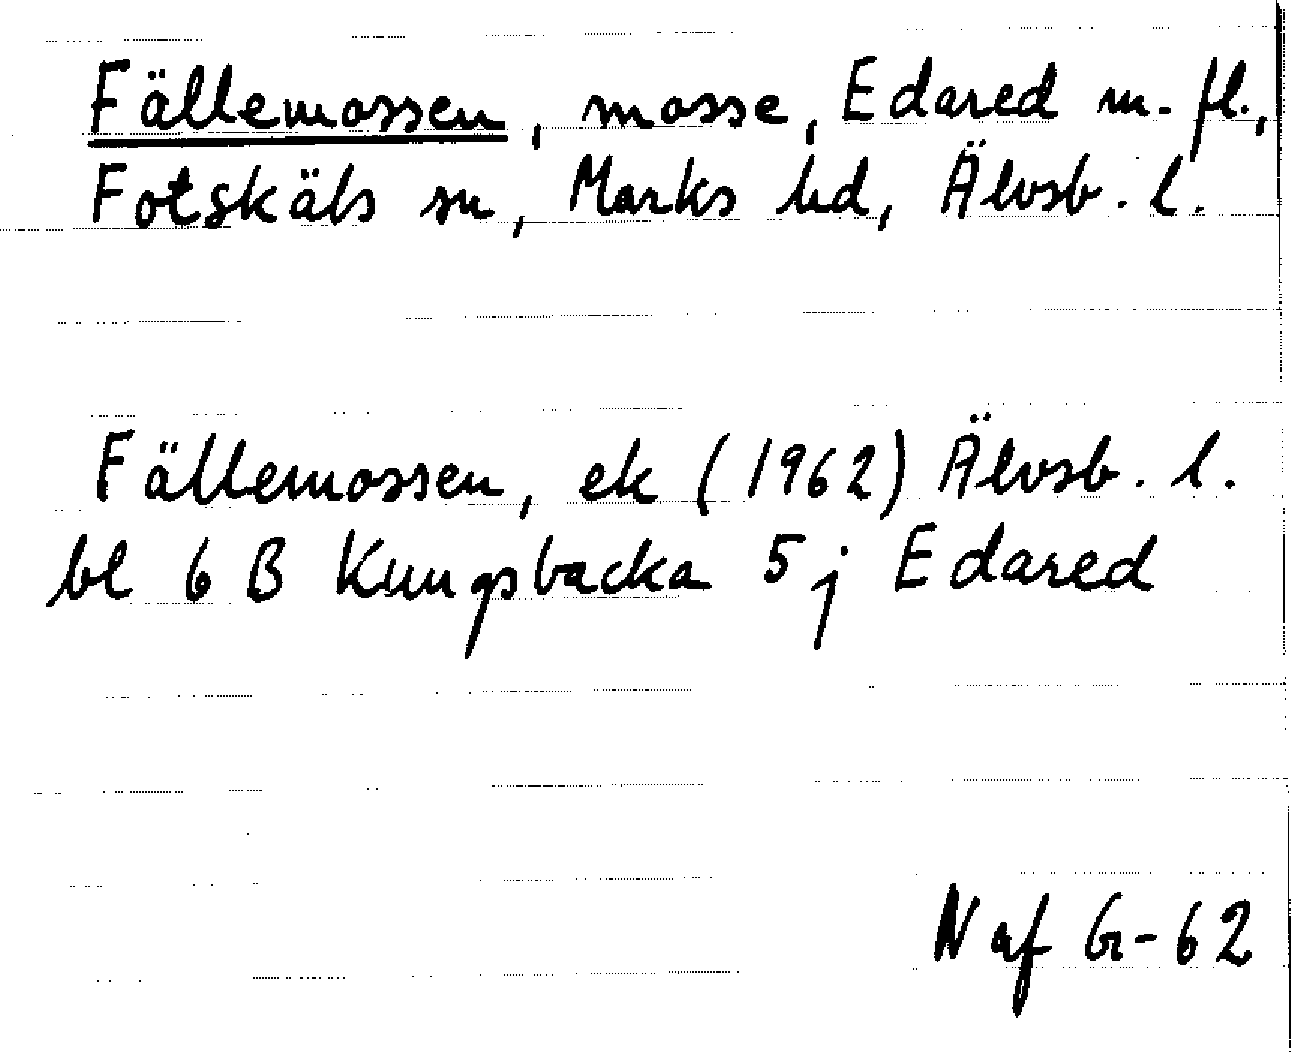 Fällemossen, mosse, Edared m. fl.,
Fotskäls sn, Marks hd, Älvsb. l.
Fällemossen, ek (1962) Älvsb. l.
bl 6 B Kungsbacka 5 j Edared
N af G-62